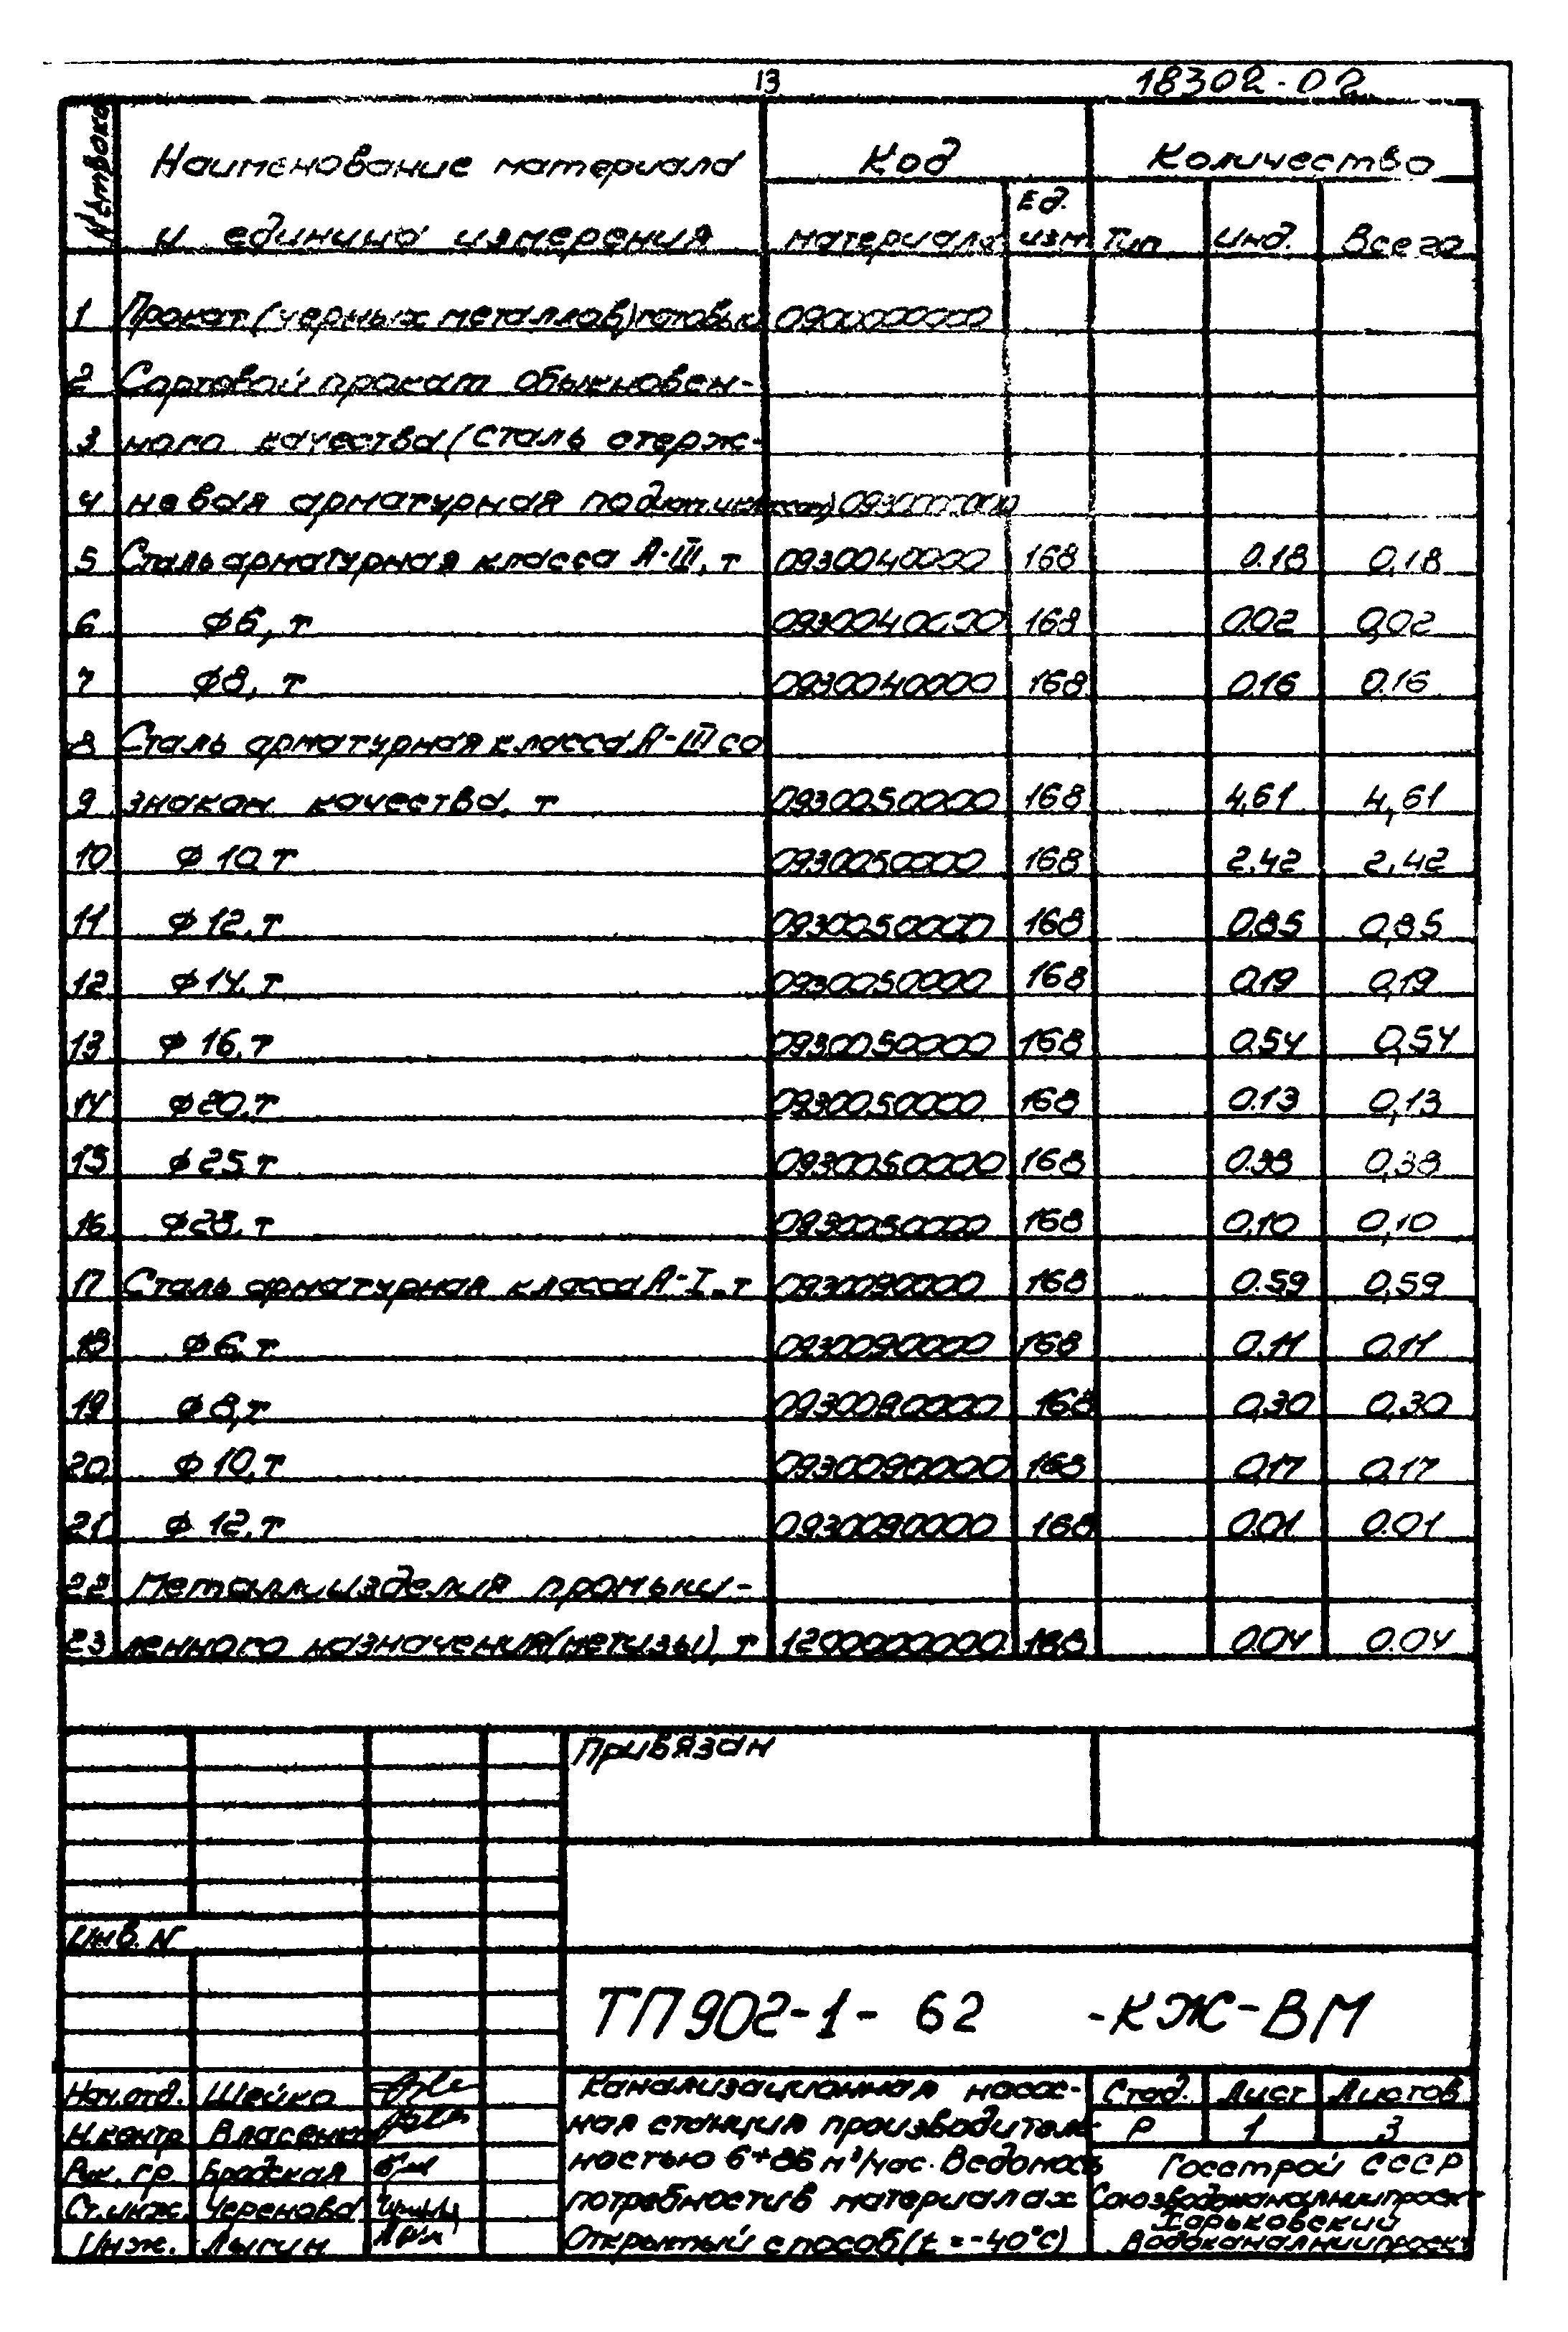 13
18302-02
N строка Наименование материала Код Количество
и единица измерения материала Ед. изм Тип Инд. Всего
1 Прокат (черных металлов) готовый 0900000000
2 Сортовой прокат обыкновен-
3 ного качества (сталь стерж-
4 невая арматурная по 0930000000
5 Сталь арматурная класса А-III, т 0930040000 168 0.18 0,18
6 ф6, т 0930040000 168 0.02 0,02
7 ф8, т 0930040000 168 0.16 0.16
8 Сталь арматурная класса А-III со
9 знаком качества, т 0930050000 168 4,61 4,61
10 ф 10, т 0930050000 168 2.42 2,42
11 ф 12, т 0930050000 168 0.85 0,85
12 ф 14, т 0930050000 168 0,19 0,19
13 ф 16, т 0930050000 168 0,54 0,54
14 ф 20, т 0930050000 168 0.13 0,13
15 ф 25 т 0930050000 168 0.38 0,38
16 ф28, т 0930050000 168 0,10 0,10
17 Сталь арматурная класса А-I, т 0930090000 168 0.59 0,59
18 ф 6, т 0930090000 168 0.11 0.11
19 ф 8, т 0930090000 168 0,30 0,30
20 ф 10, т 0930090000 168 0,17 0,17
21 ф 12, т 0930090000 168 0.01 0.01
22 Металлоизделия промыш-
23 ленного назначения (метизы), т 1200000000 168 0.04 0.04
Привязан
Инв. N
ТП 902-1- 62 -КЖ-ВМ
Нач.отд. Шейко
Н.контр Власенко
Рук. гр Бродская
Ст.инж. Черенова
Инж. Лысин
Канализационная насос-
ная станция производитель
ностью 6÷86 м³/час. Ведомость
потребности в материалах
Открытый способ (t = -40°C)
Стад. Лист Листов
Р 1 3
Госстрой СССР
Союзводоканалниипроект
Харьковский
Водоканалниипроект